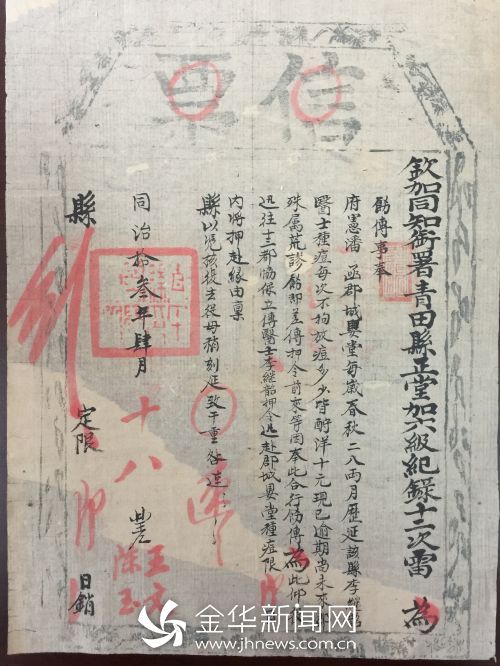 信票
欽加同知銜署青田縣正堂加六級紀錄十二次雷 為
飭傳事奉
府憲潘 函郡城嬰堂每歲春秋二八兩月歷延該縣李
醫士種痘每次不拘放痘多少皆酧洋十元現已逾期尚未來
殊屬荒謬飭即差傳押令前來等因奉此合行飭傳為此仰
迅往十三都協保立傳醫士李繼韶押令迅赴郡城嬰堂種痘限
內將押赴緣由稟
縣以憑核後去役毋稍刻延致干重咎速
同治拾叁年肆月 十八
王
陳玉
縣 定限 日銷
金华新闻网
www.jhnews.com.cn